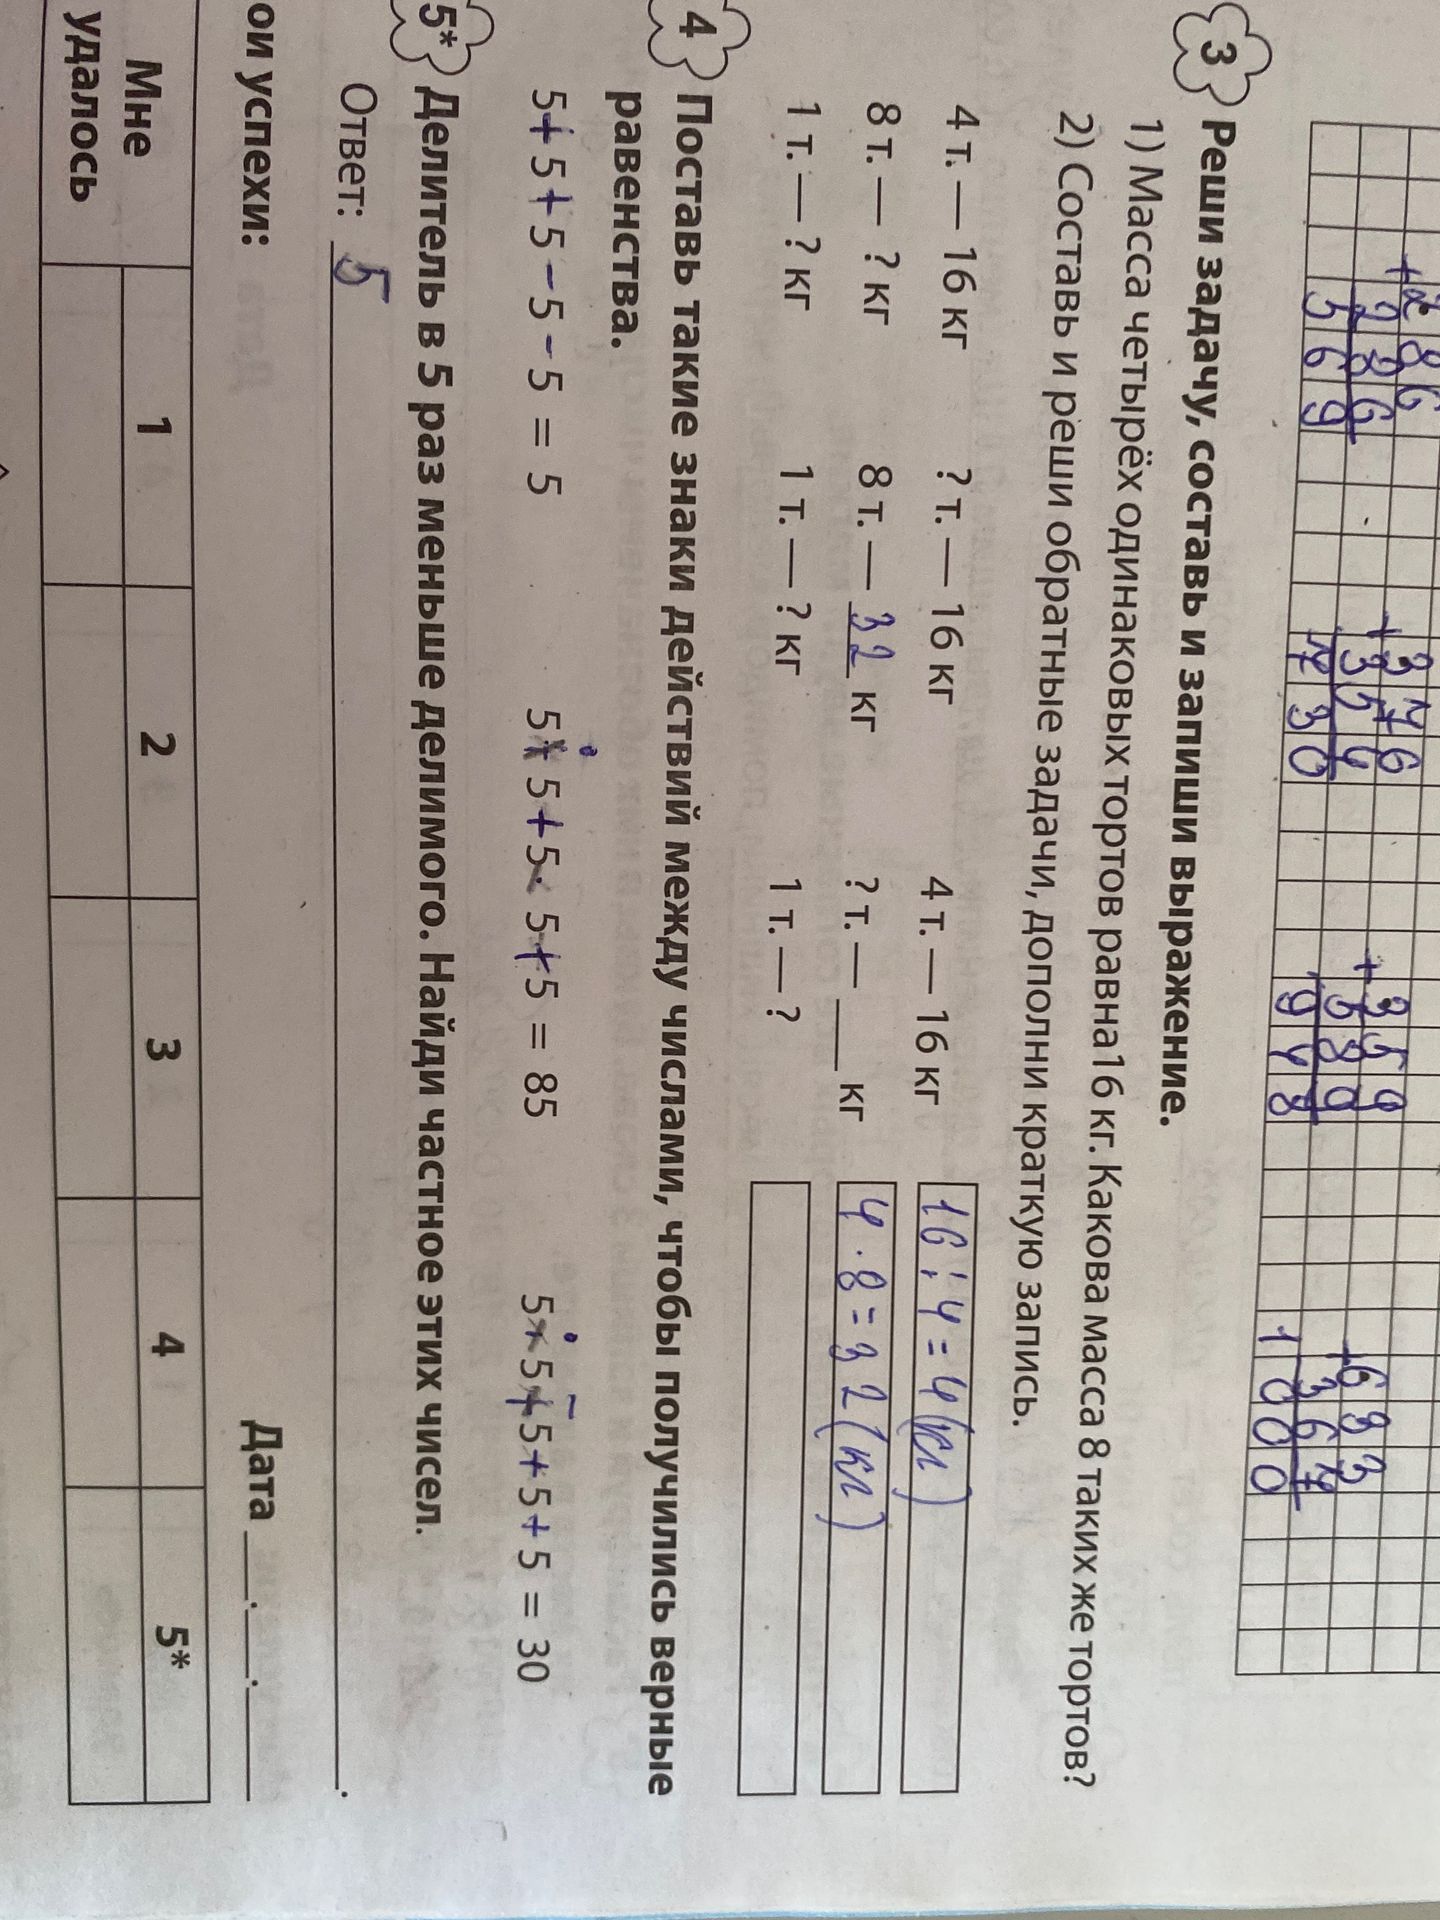 3 Реши задачу, составь и запиши выражение.
1) Масса четырёх одинаковых тортов равна16 кг. Какова масса 8 таких же тортов?
2) Составь и реши обратные задачи, дополни краткую запись.
4 т. — 16 кг ? т. — 16 кг 4 т. — 16 кг 16 : 4 = 4 (кг)
8 т. — ? кг 8 т. — 32 кг ? т. — ___ кг 4 · 8 = 32 (кг)
1 т. — ? кг 1 т. — ? кг 1 т. — ?
4 Поставь такие знаки действий между числами, чтобы получились верные
равенства.
5 + 5 + 5 - 5 - 5 = 5 5 5 + 5 · 5 + 5 = 85 5 5 5 + 5 + 5 = 30
5* Делитель в 5 раз меньше делимого. Найди частное этих чисел.
Ответ: 5.
ои успехи: Дата __.__.____
Мне 1 2 3 4 5*
удалось